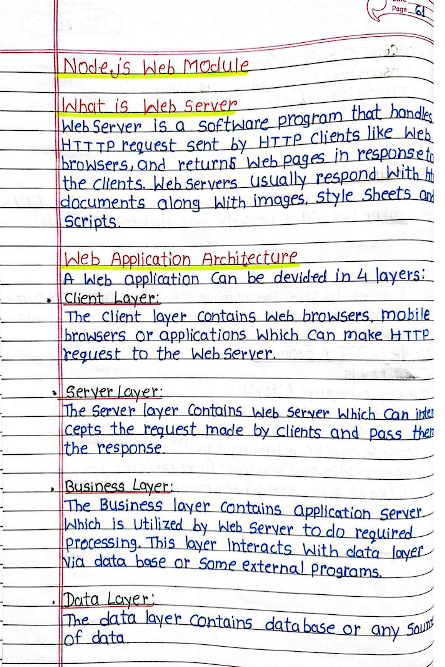 Page 61
Node.js Web Module
What is Web Server
Web Server is a software program that handles
HTTTP request sent by HTTP clients like Web
browsers, and returns Web pages in response to
the clients. Web Servers usually respond With
documents along With images, style Sheets and
Scripts.
Web Application Architecture
A Web application Can be devided in 4 layers:
• Client Layer:
The Client layer Contains Web browsers, mobile
browsers or applications Which Can make HTTP
request to the Web Server.
• Server Layer:
The Server layer Contains Web Server Which Can inter
cepts the request made by Clients and Pass them
the response.
• Business Layer:
The Business layer Contains application Server
Which is Utilized by Web Server to do required
Processing. This layer interacts With data layer
Via data base or Some external Programs.
• Data Layer:
The data layer Contains database or any
of data